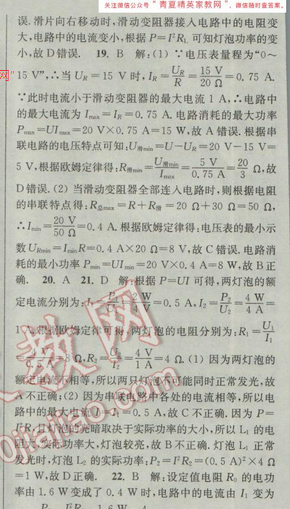 关注微信公众号
"青夏精英家教网"
获取更多学习资料
误. 滑片向右移动时,滑动变阻器接入电路中的电阻变
大,电路中的电流变小,根据 P=I²R_L 可知灯泡功率的变
小,故 D 错误. 19. B 解:(1)∵电压表量程为"0~
15 V",∴当 U_R=15 V 时,I_R=U_R/R=15 V/20 Ω=0.75 A.
∵此时电流小于滑动变阻器的最大电流 1 A,∴电路中
的最大电流为 I_max=I_R=0.75 A. 电路消耗的最大功率
P_max=UI_max=20 V×0.75 A=15 W,故 A 错误. 根据串
联电路的电压特点可知:U_滑min=U-U_R=20 V-15 V=
5 V,根据欧姆定律得:R_滑min=U_滑min/I_max=5 V/0.75 A=20/3 Ω,故
D 错误. (2)当滑动变阻器全部连入电路时,则根据电阻
的串联特点得:R_总max=R+R_滑=20 Ω+30 Ω=50 Ω,
∴I_min=20 V/50 Ω=0.4 A. 根据欧姆定律得:电压表的最小示
数 U_Rmin=I_minR=0.4 A×20 Ω=8 V,故 C 错误. 电路消
耗的最小功率 P_min=UI_min=20 V×0.4 A=8 W,故 B 正
确. 20. A 21. D 解:根据 P=UI 可得,两灯泡的额
定电流分别为:=0.5 A,I₂=P₂/U₂=4 W/4 V=
根据欧姆定律可得,两灯泡的电阻分别为:R₁=U₁/I₁
=8 Ω,R₂==4 V/1 A=4 Ω. (1)因为两灯泡的
额定电流不相等,所以两只灯泡不可能同时正常发光,故
A 不正确;(2)因为串联电路中各处的电流相等,所以电
路中的最大电流=0.5 A,故 C 不正确. 因为 P=
I²R,且灯泡的亮暗取决于实际功率的大小,所以 L₁ 的电
阻大,实际功率大,灯泡较亮,故 B 不正确. 灯泡 L₁ 正常
发光时,灯泡 L₂ 的实际功率:P₂=I²R₂=(0.5 A)²×4 Ω
=1 W,故 D 正确. 22. B 解:设定值电阻 R₀ 的电功
率由 1.6 W 变成了 0.4 W 时,电路中的电流由 I₁ 变为